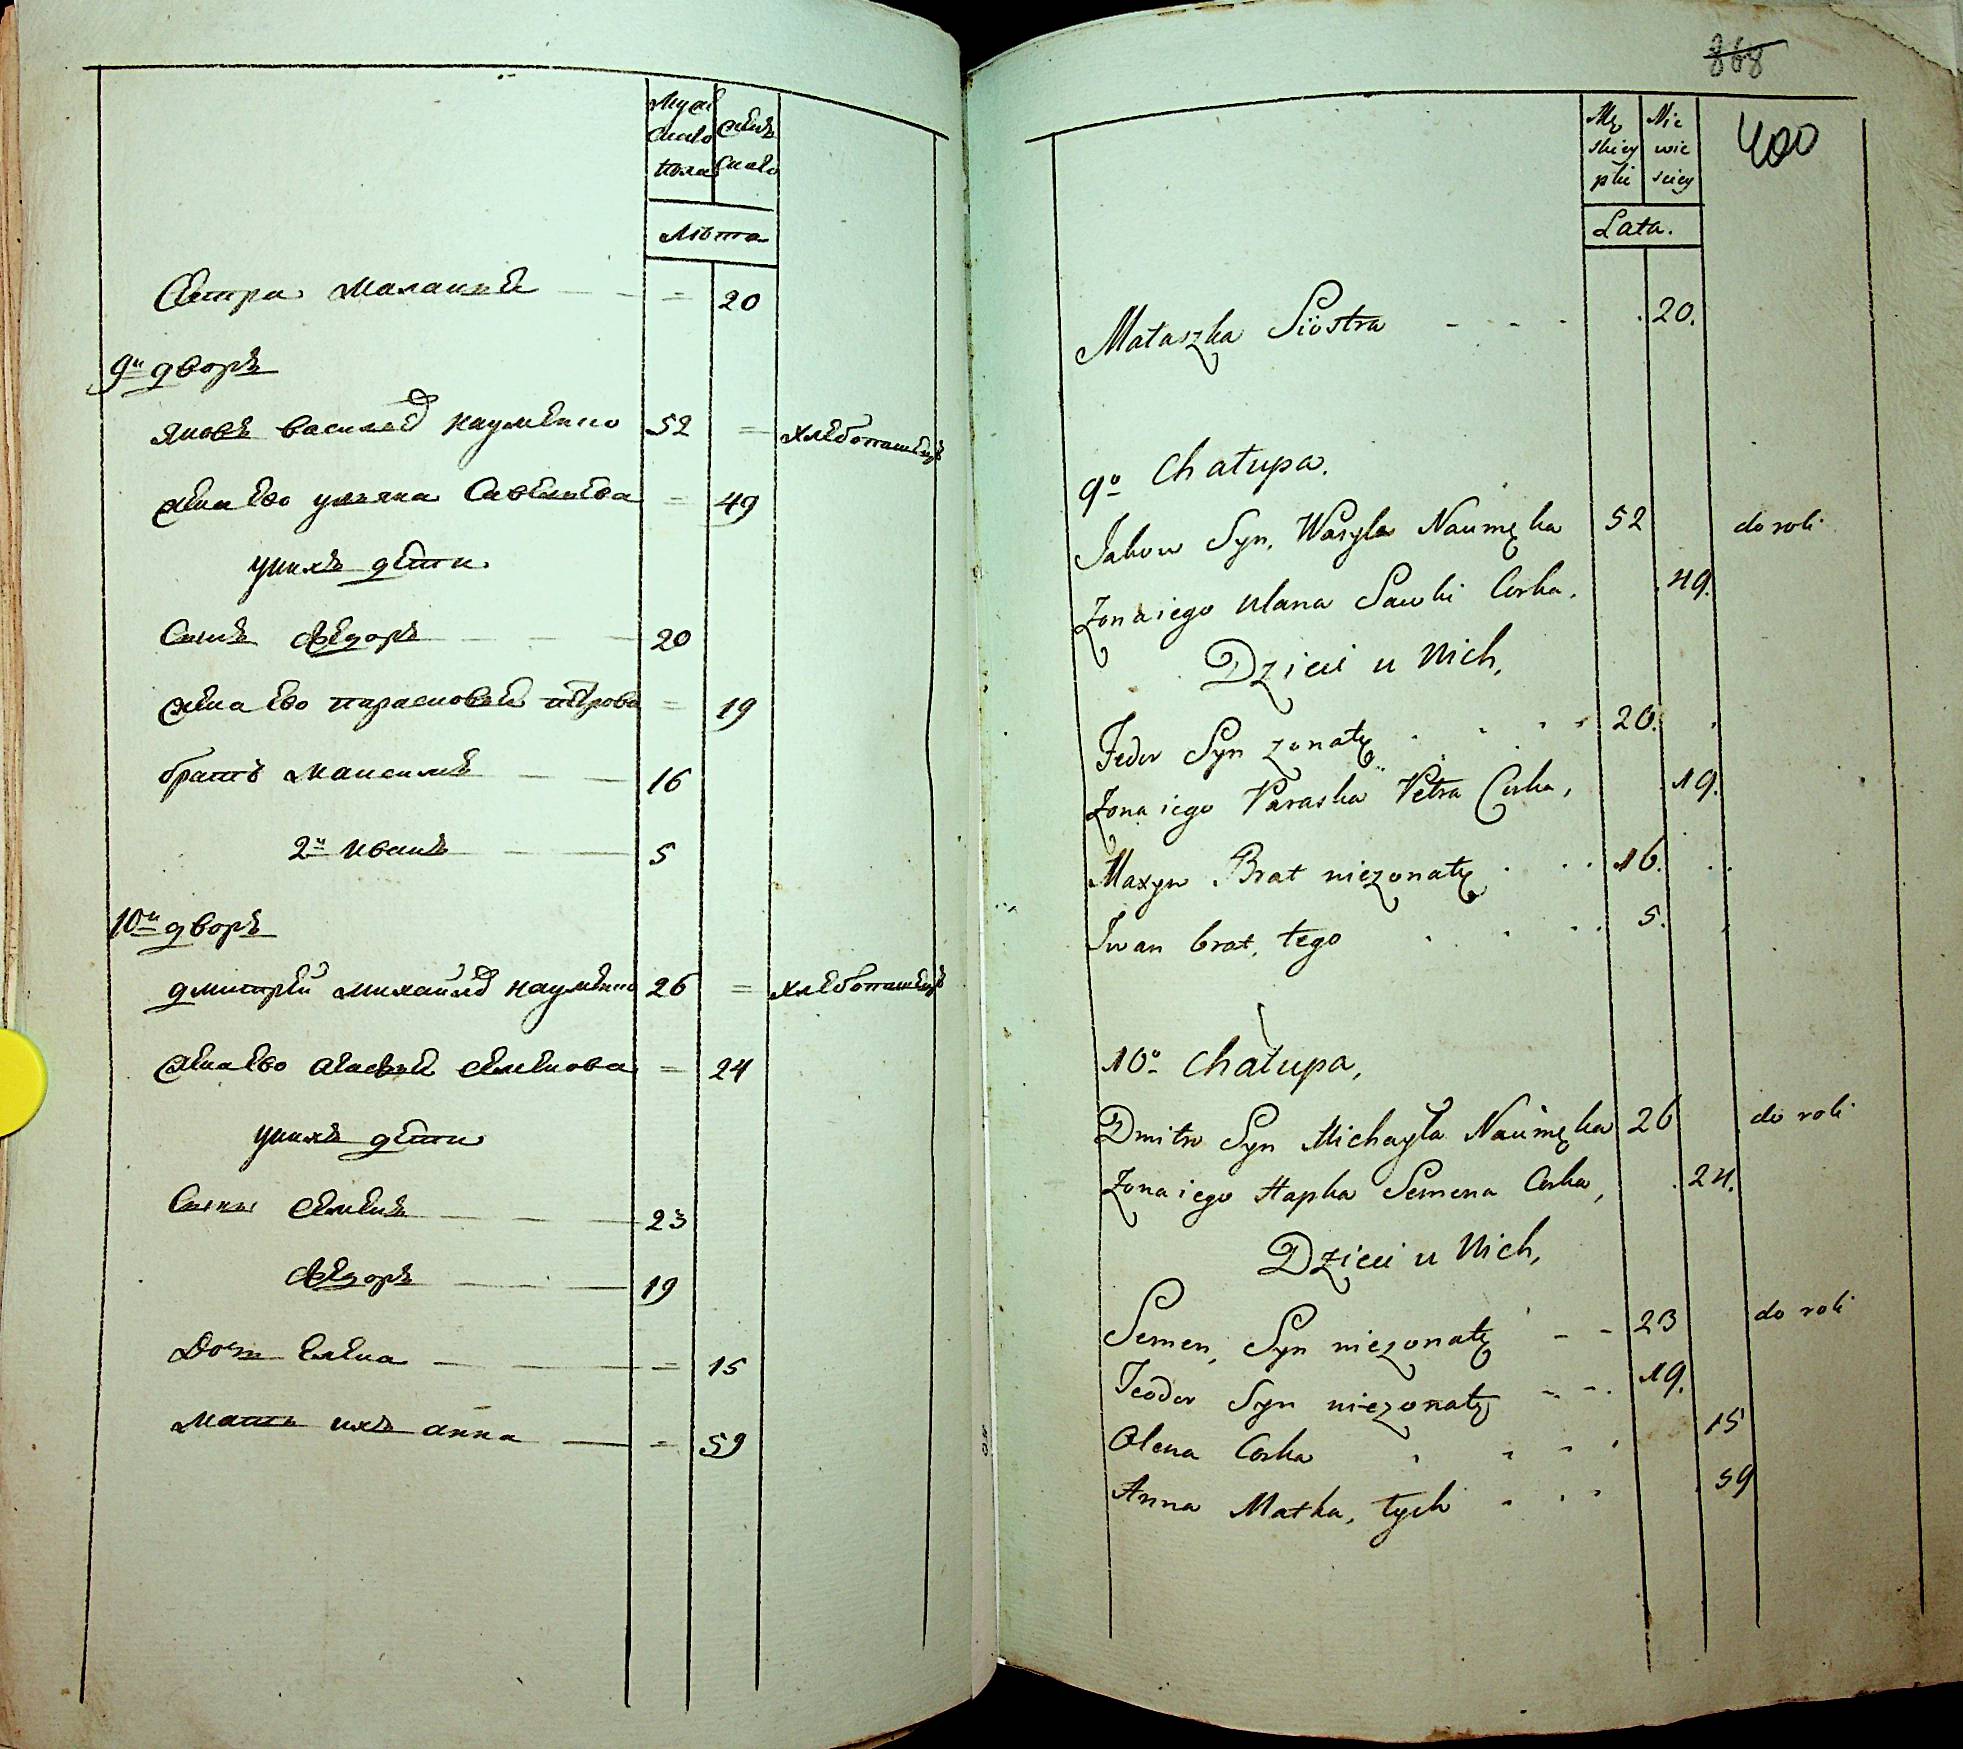 Мужеска пола
женска
Лѣта
Сестра Маланья 20
9й дворъ
Яковъ Васильев Науменко 52 хлебопашецъ
жена ево Ульяна Савельева 49
у нихъ дети
Сынъ Федоръ 20
жена ево Парасковья Петрова 19
братъ Максимъ 16
2й Иванъ 5
10й дворъ
Дмитрей Михайлов Науменко 26 хлебопашецъ
жена ево Агафья Семенова 24
у нихъ дети
Сыны Семенъ 23
Федоръ 19
Доч Елена 15
Мать ихъ Анна 59
868
400
Męskiey płci
Niewieściey
Lata.
Małaszka Siostra 20.
9o Chałupa.
Jakow Syn Wasyla Naumęka 52 do roli
Żona iego Ulana Sawki Corka, 49.
Dzieci u Nich,
Fedor Syn żonaty 20.
Żona iego Paraska Petra Corka, 19.
Maxym Brat nieżonaty 16.
Iwan brat, tego 5.
10o Chałupa,
Dmitro Syn Michayła Naumęka 26 do roli
Żona iego Hapka Semena Corka, 24.
Dzieci u Nich,
Semen, Syn nieżonaty 23 do roli
Teodor Syn nieżonaty 19.
Olena Corka 15
Anna Matka, tych 59